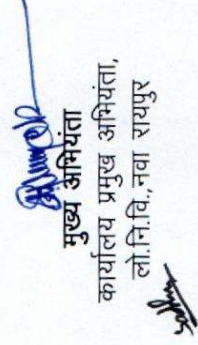 मुख्य अभियंता
कार्यालय प्रमुख अभियंता,
लो.नि.वि.,नवा रायपुर